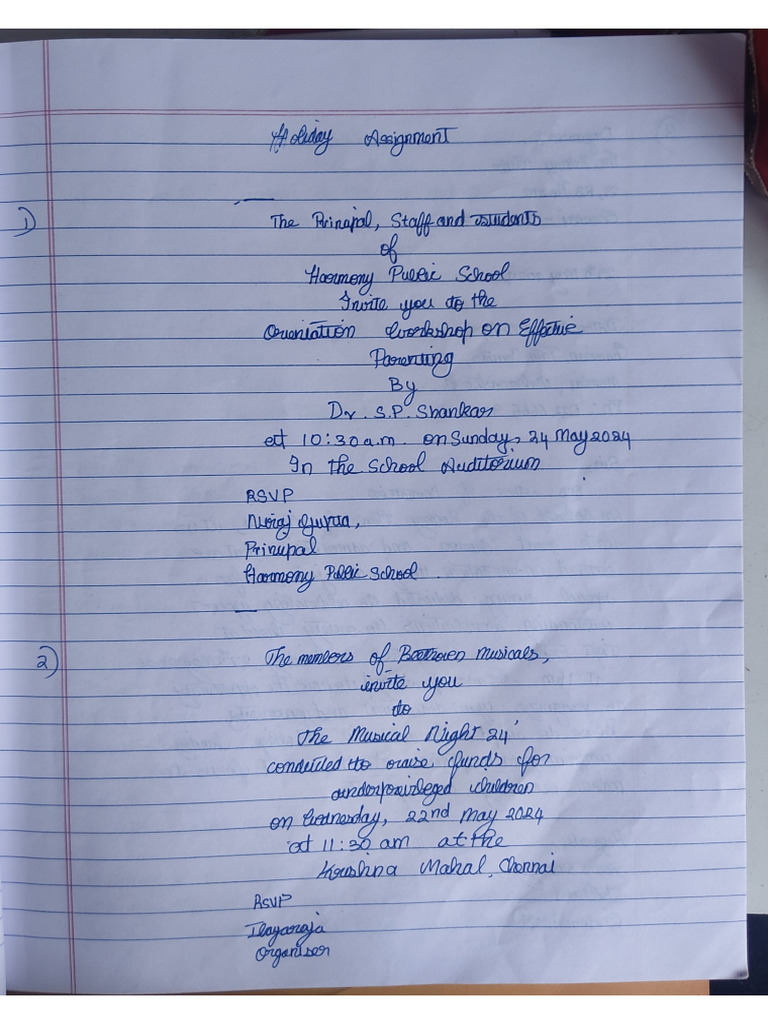 Holiday Assignment
1)
The Prinipal, Staff and students
of
Harmony Public School
Invite you to the
Orientation Workshop on Effective
Parenting
By
Dr. S.P. Shankar
at 10:30 a.m. on Sunday, 24 May 2024
In the School Auditorium
RSVP
Niraj Gupta,
Principal
Harmony Public School.
2)
The members of Beethoven Musicals,
invite you
to
The Musical Night 24'
conducted to raise funds for
underprivileged children
on Wednesday, 22nd May 2024
at 11:30 am at the
Krishna Mahal, Chennai
RSVP
Ilayaraja
Organiser